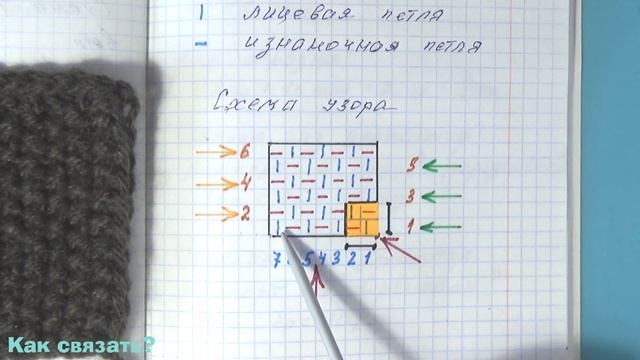 | лицевая петля
- изнаночная петля
Схема узора
6
5
4
3
2
1
7 5 4 3 2 1
Как связать?